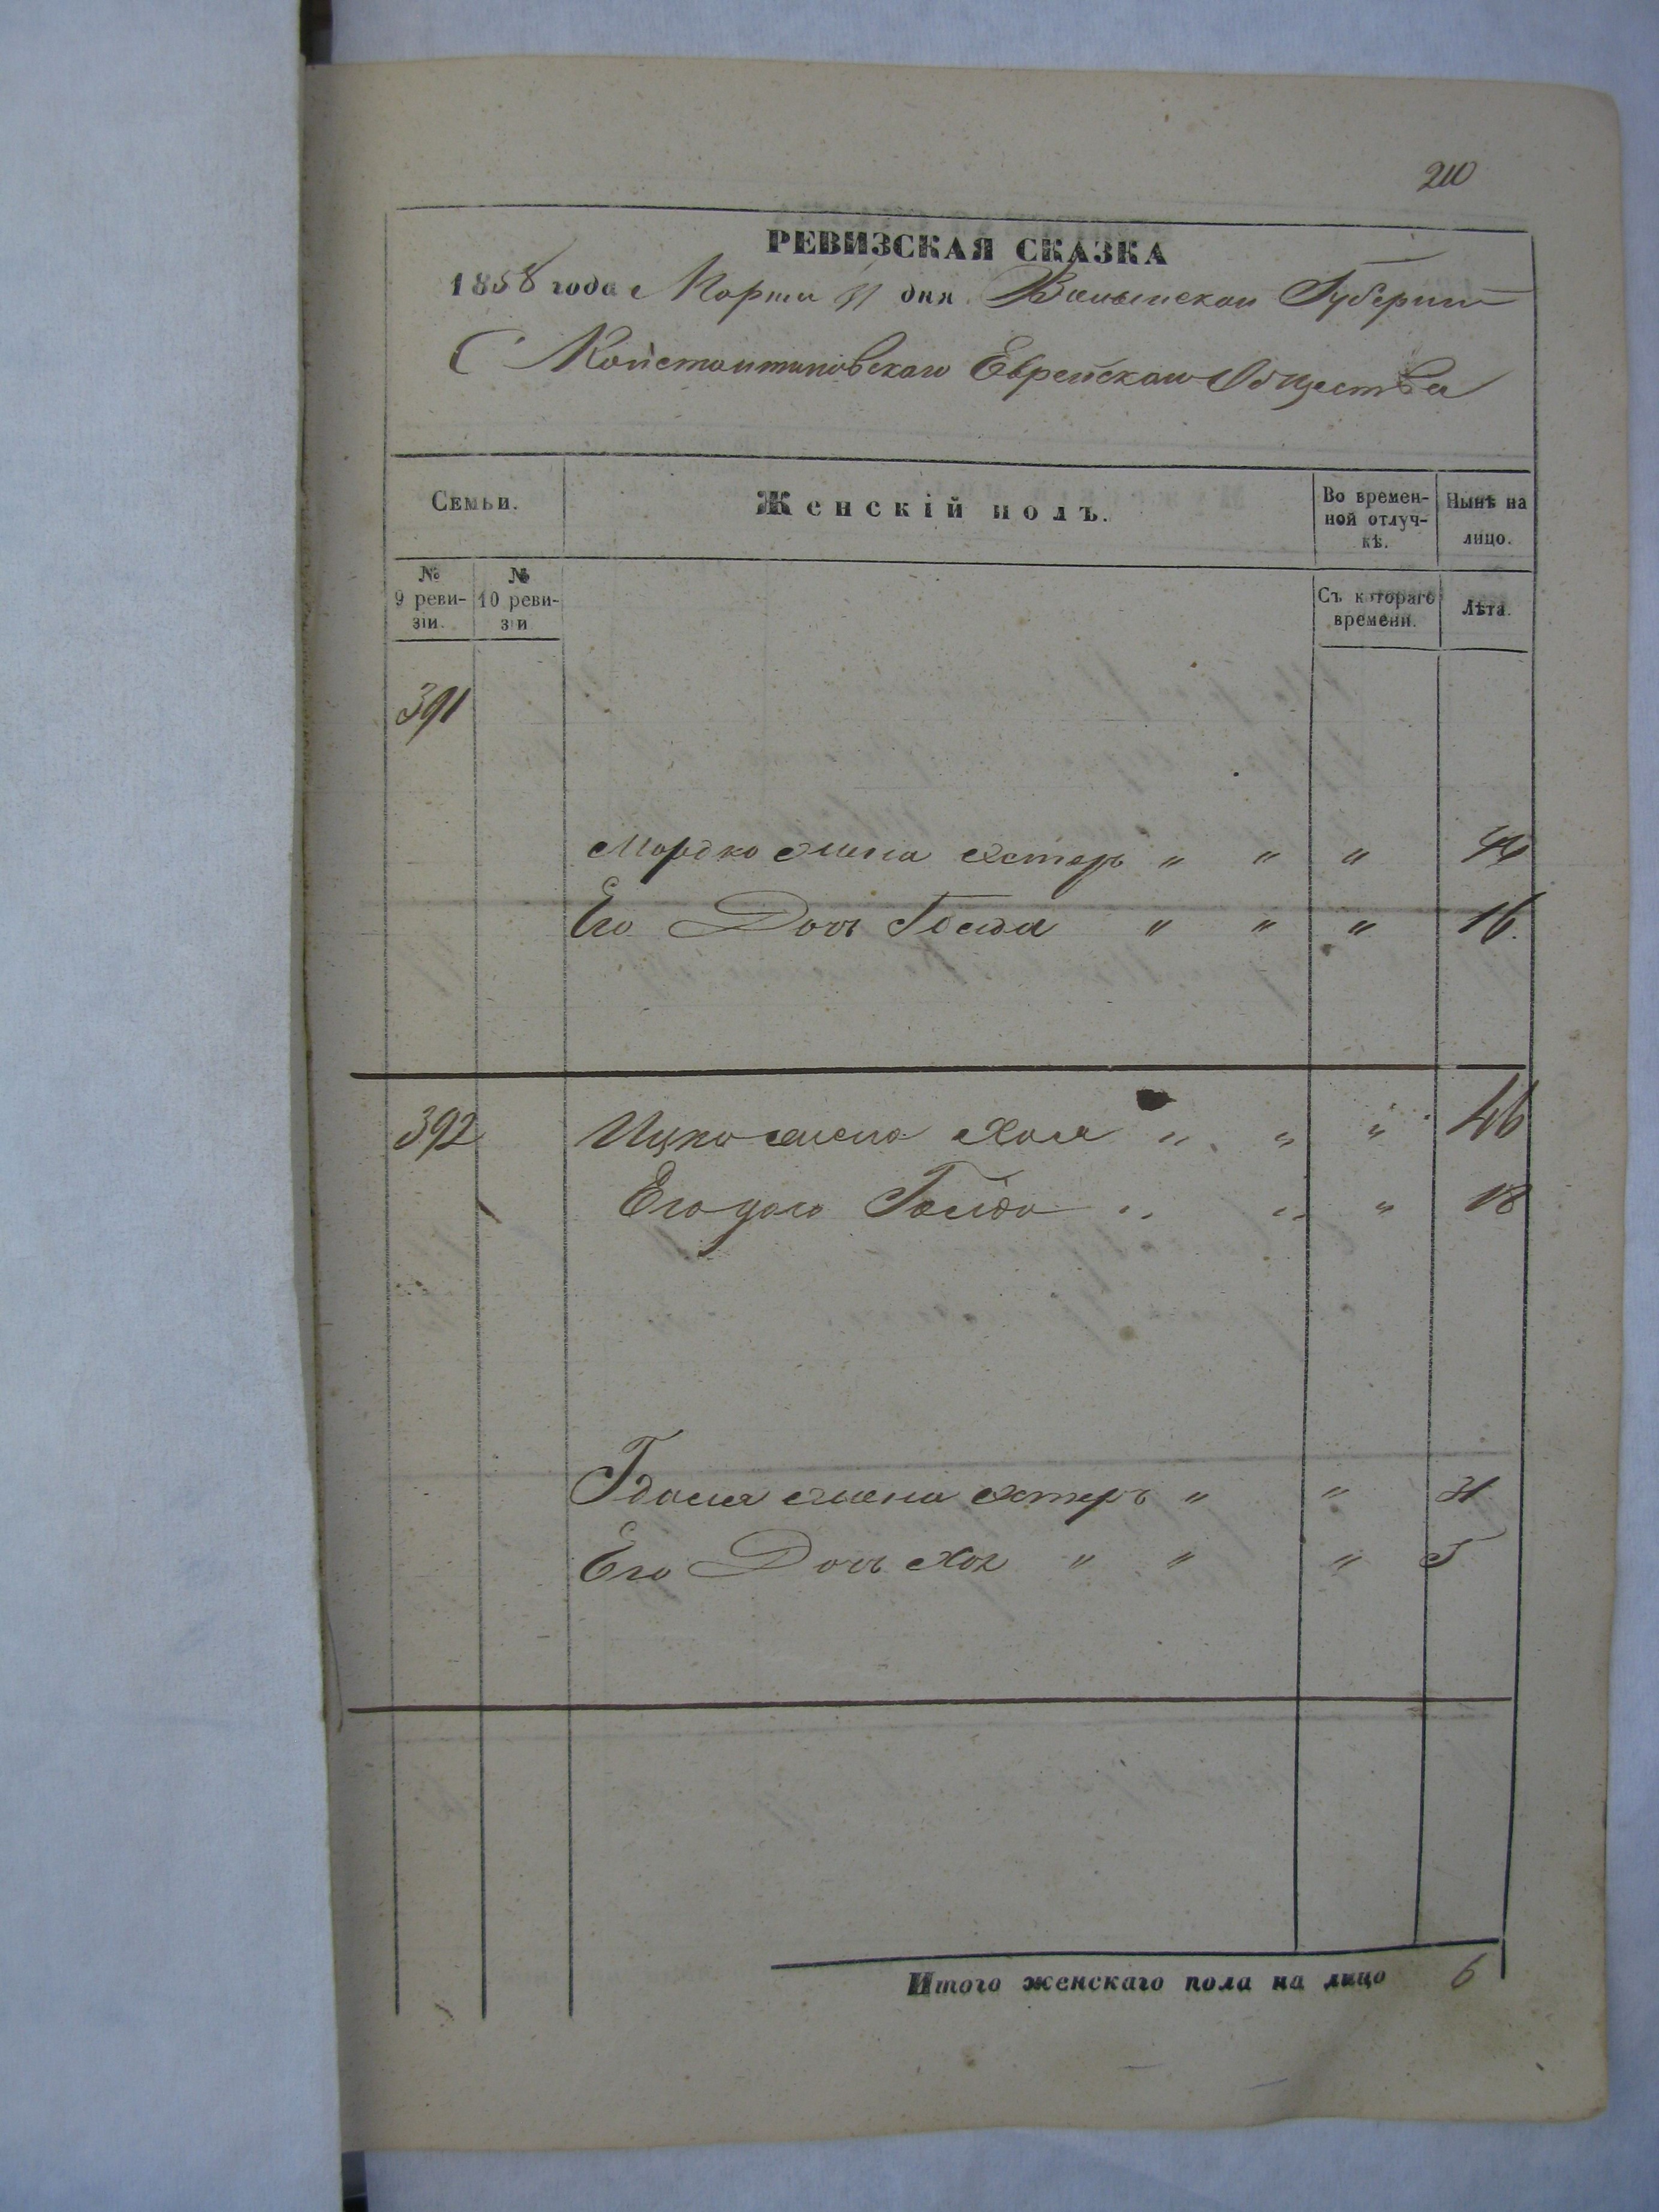 210
РЕВИЗСКАЯ СКАЗКА
1858 года Марта 31 дня Волынской Губернии
С Константиновскаго Еврейскаго Общества
Семьи. Женскій полъ. Во времен-ной отлуч-кѣ. Нынѣ на лицо.
№ 9 реви-зіи. № 10 реви-зіи Съ котораго времени. Лѣта.
391
Мордко жена Эстеръ " " " 44
Его Дочь " " " 16.
392 Ицко жена Хая " " " 46
Его дочь " " " 18
Гдаля жена Эстеръ " "
Его Дочь " " "
Итого женскаго пола на лицо 6